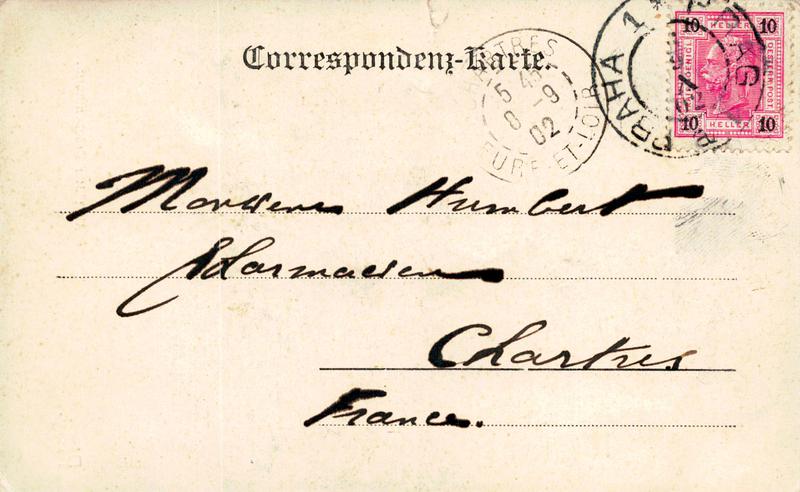 Correspondenz-Karte.
CHARTRES
5 45
8 -9
02
EURE-ET-LOIR
PRAHA 1 * PRAG
02
10 HELLER 10
10 HELLER 10
Monsieur Humbert
Pharmacien
Chartres
France.